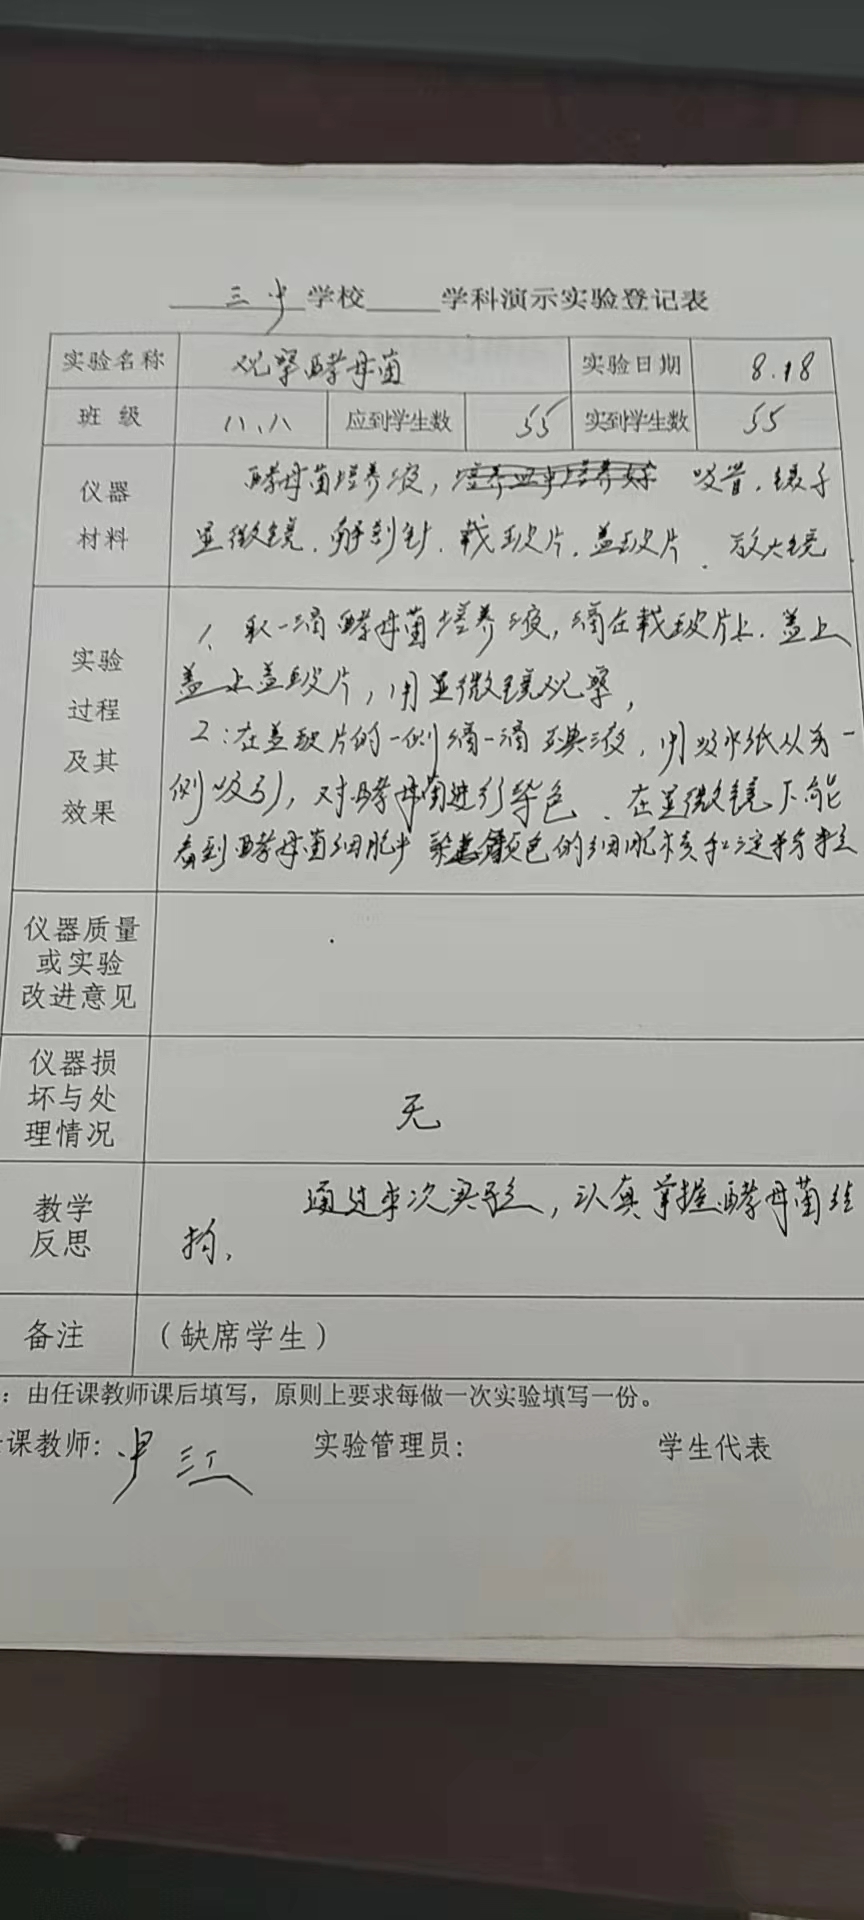 三中学校____学科演示实验登记表
实验名称 观察酵母菌 实验日期 8.18
班级 八、八 应到学生数 55 实到学生数 55
仪器 酵母菌培养液, 吸管.镊子
材料 显微镜.解剖针.载玻片.盖玻片.放大镜.
1、取一滴酵母菌培养液,滴在载玻片上.盖上
实验 盖上盖玻片,用显微镜观察,
过程 2:在盖玻片的一侧滴一滴碘液,用吸水纸从另一
及其 侧吸引,对酵母菌进行染色.在显微镜下能
效果 看到酵母菌细胞中染色的细胞核和淀粉粒
仪器质量
或实验
改进意见
仪器损
坏与处 无
理情况
教学 通过本次实验,认真掌握酵母菌结
反思 构.
备注 (缺席学生)
:由任课教师课后填写,原则上要求每做一次实验填写一份。
课教师: 实验管理员: 学生代表